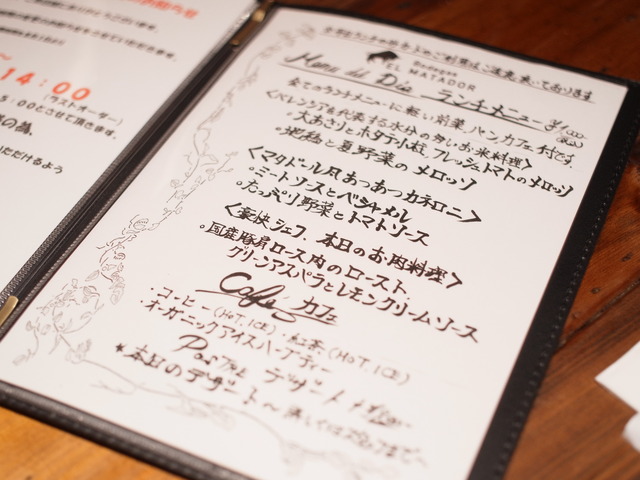 14:00
(ラストオーダー)
5:00とさせて頂きます。
の為、
いただけるよう
Bodegas
EL MATADOR
Menu del Dia ランチメニュー
全てのランチメニューに軽い前菜、パン、カフェ付です。
<バレンシアを代表する水分の多いお米料理>
・大あさりとホタテ小柱、フレッシュトマトのメロッソ
・地鶏と夏野菜のメロッソ
<マタドール風あつあつカネロニ>
・ミートソースとベシャメル
・たっぷり野菜とトマトソース
<豪快シェフ、本日のお肉料理>
・国産豚肩ロース肉のロースト、
グリーンアスパラとレモンクリームソース
Café カフェ
・コーヒー(HOT, ICE)・紅茶(HOT, ICE)
・オーガニックアイスハーブティー
Postre デザート
*本日のデザート〜詳しくはスタッフまで〜